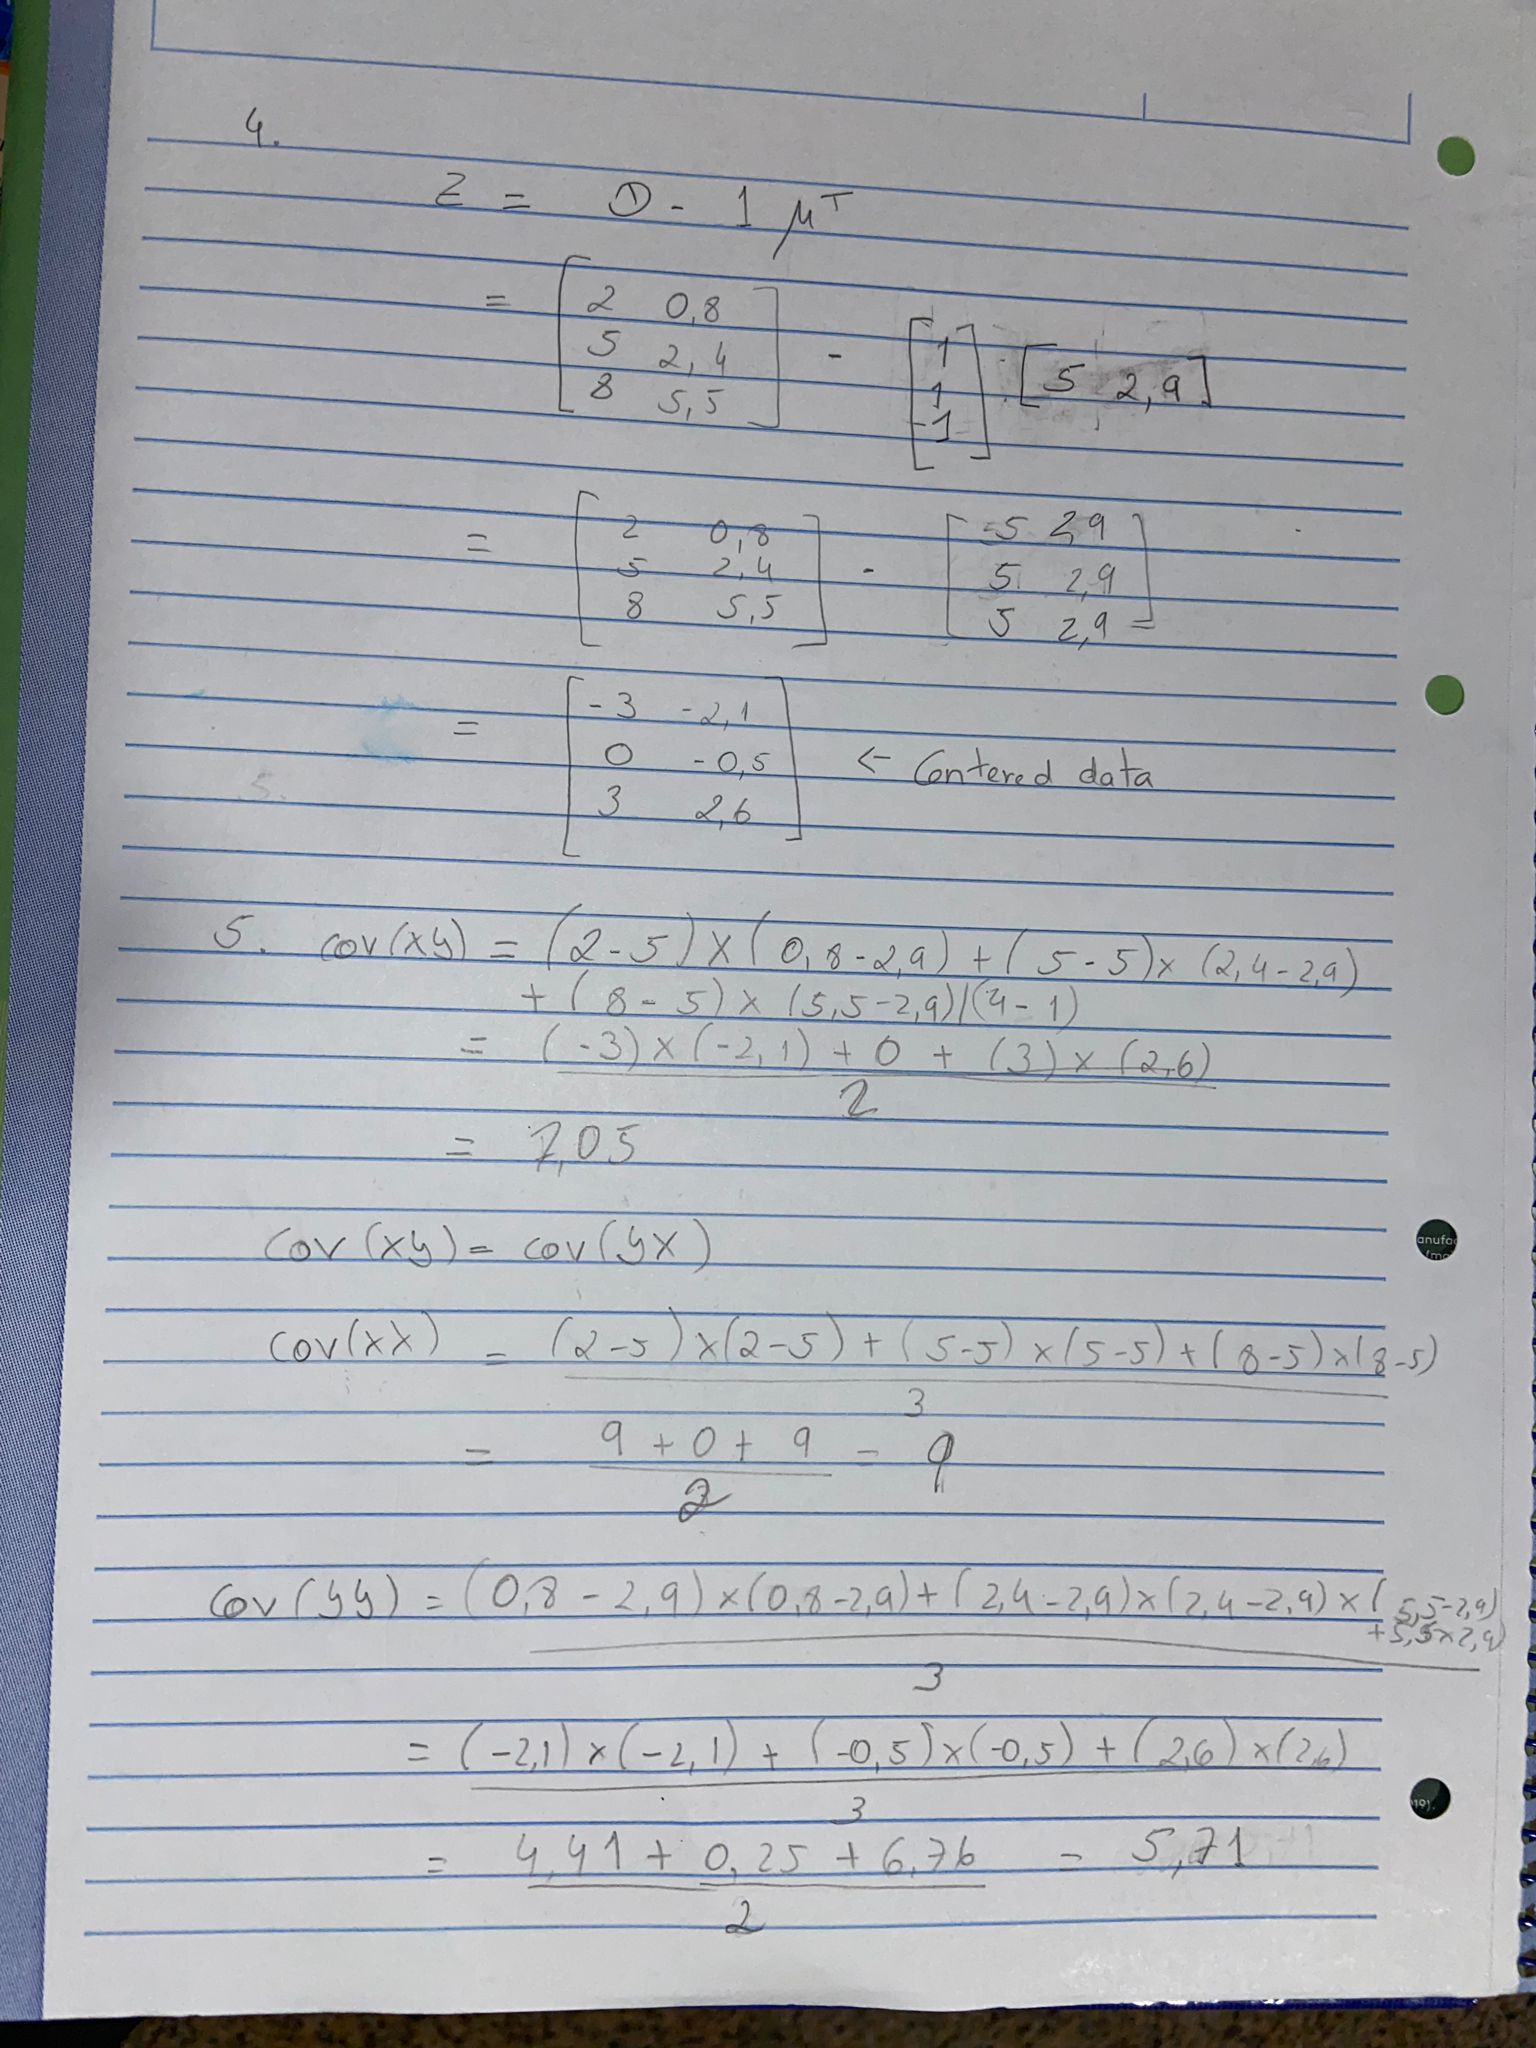 4.
Z = D - 1 μᵀ
= [ 2 0,8
5 2,4
8 5,5 ] - [ 1
1
1 ] . [ 5 2,9 ]
= [ 2 0,8
5 2,4
8 5,5 ] - [ 5 2,9
5 2,9
5 2,9 ]
= [ -3 -2,1
0 -0,5
3 2,6 ] ← Centered data
5. cov(xy) = (2-5)×(0,8-2,9)+(5-5)×(2,4-2,9)
+(8-5)×(5,5-2,9)/(4-1)
= (-3)×(-2,1)+0+(3)×(2,6)
2
= 7,05
Cov(xy) = cov(yx)
cov(xx) = (2-5)×(2-5)+(5-5)×(5-5)+(8-5)×(8-5)
3
= 9+0+9 = 9
2
Cov(yy) = (0,8-2,9)×(0,8-2,9)+(2,4-2,9)×(2,4-2,9)×(5,5-2,9)
+5,5×2,9)
3
= (-2,1)×(-2,1)+(-0,5)×(-0,5)+(2,6)×(2,6)
3
= 4,41+0,25+6,76 = 5,71
2